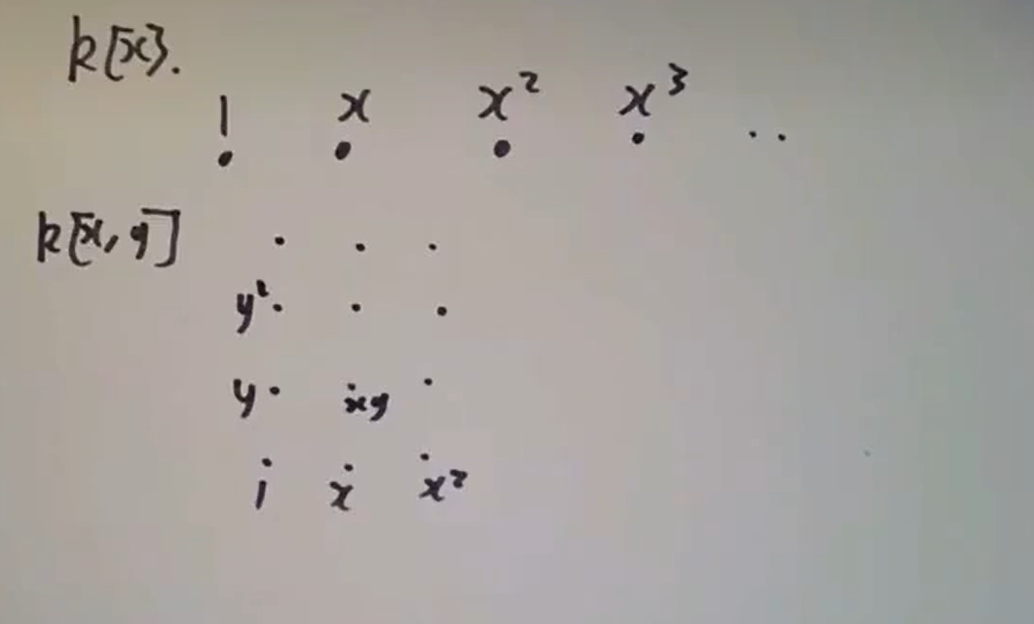 k[x].
1 x x² x³ ..
k[x,y]
y²
y xy
1 x x²